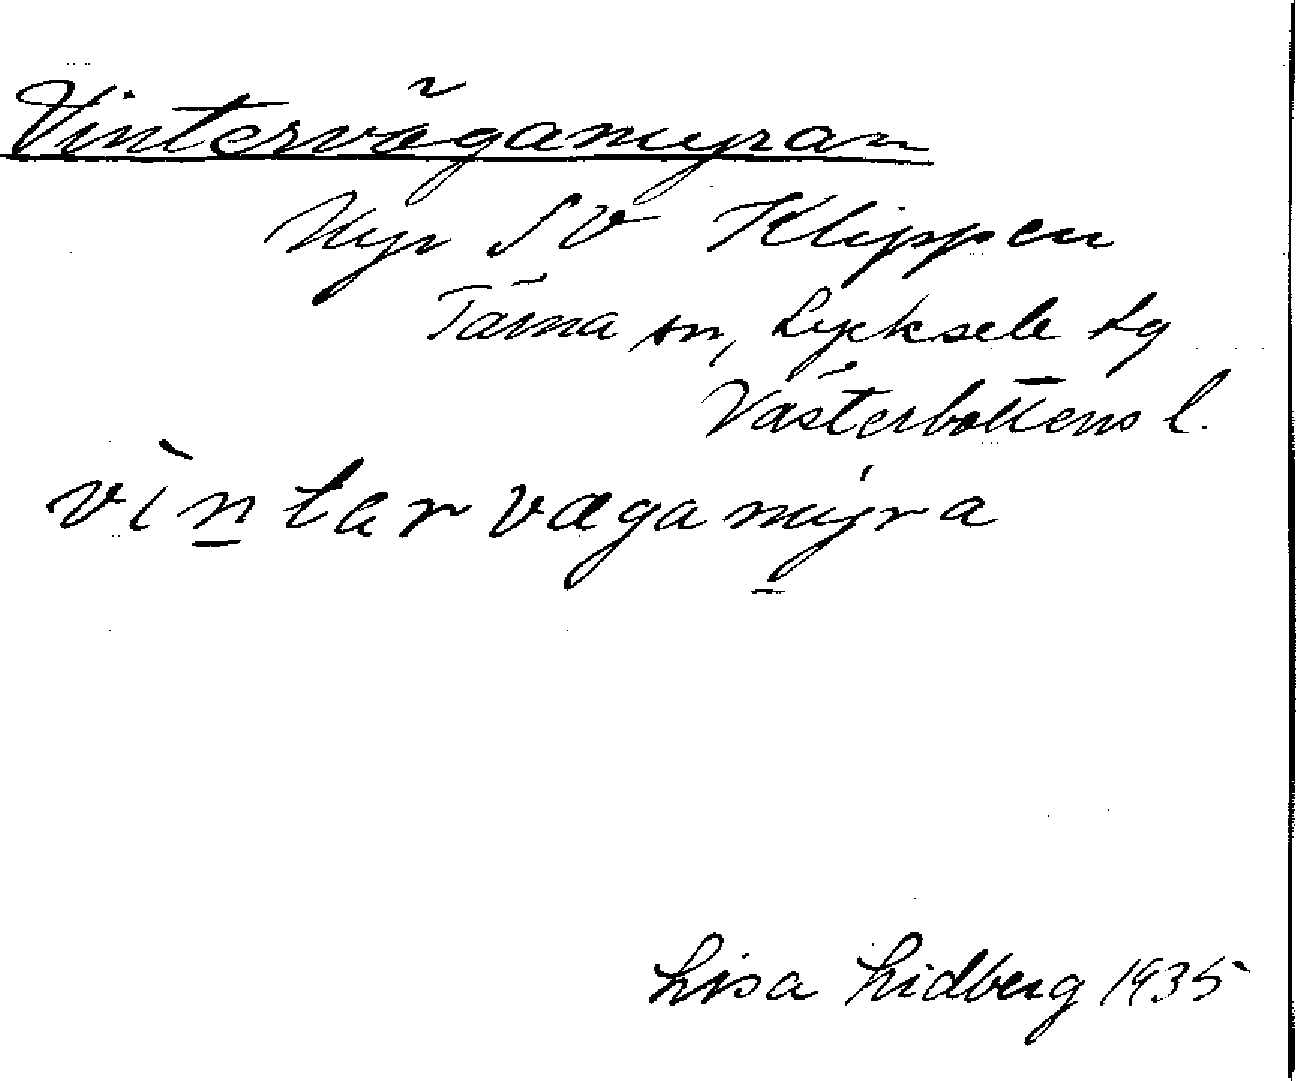 Vintervägamyran
Myr SV Klippen
Tärna sn, Lycksele lg
Västerbottens l.
vìn̲tarvægamýra
Lisa Lidberg 1935